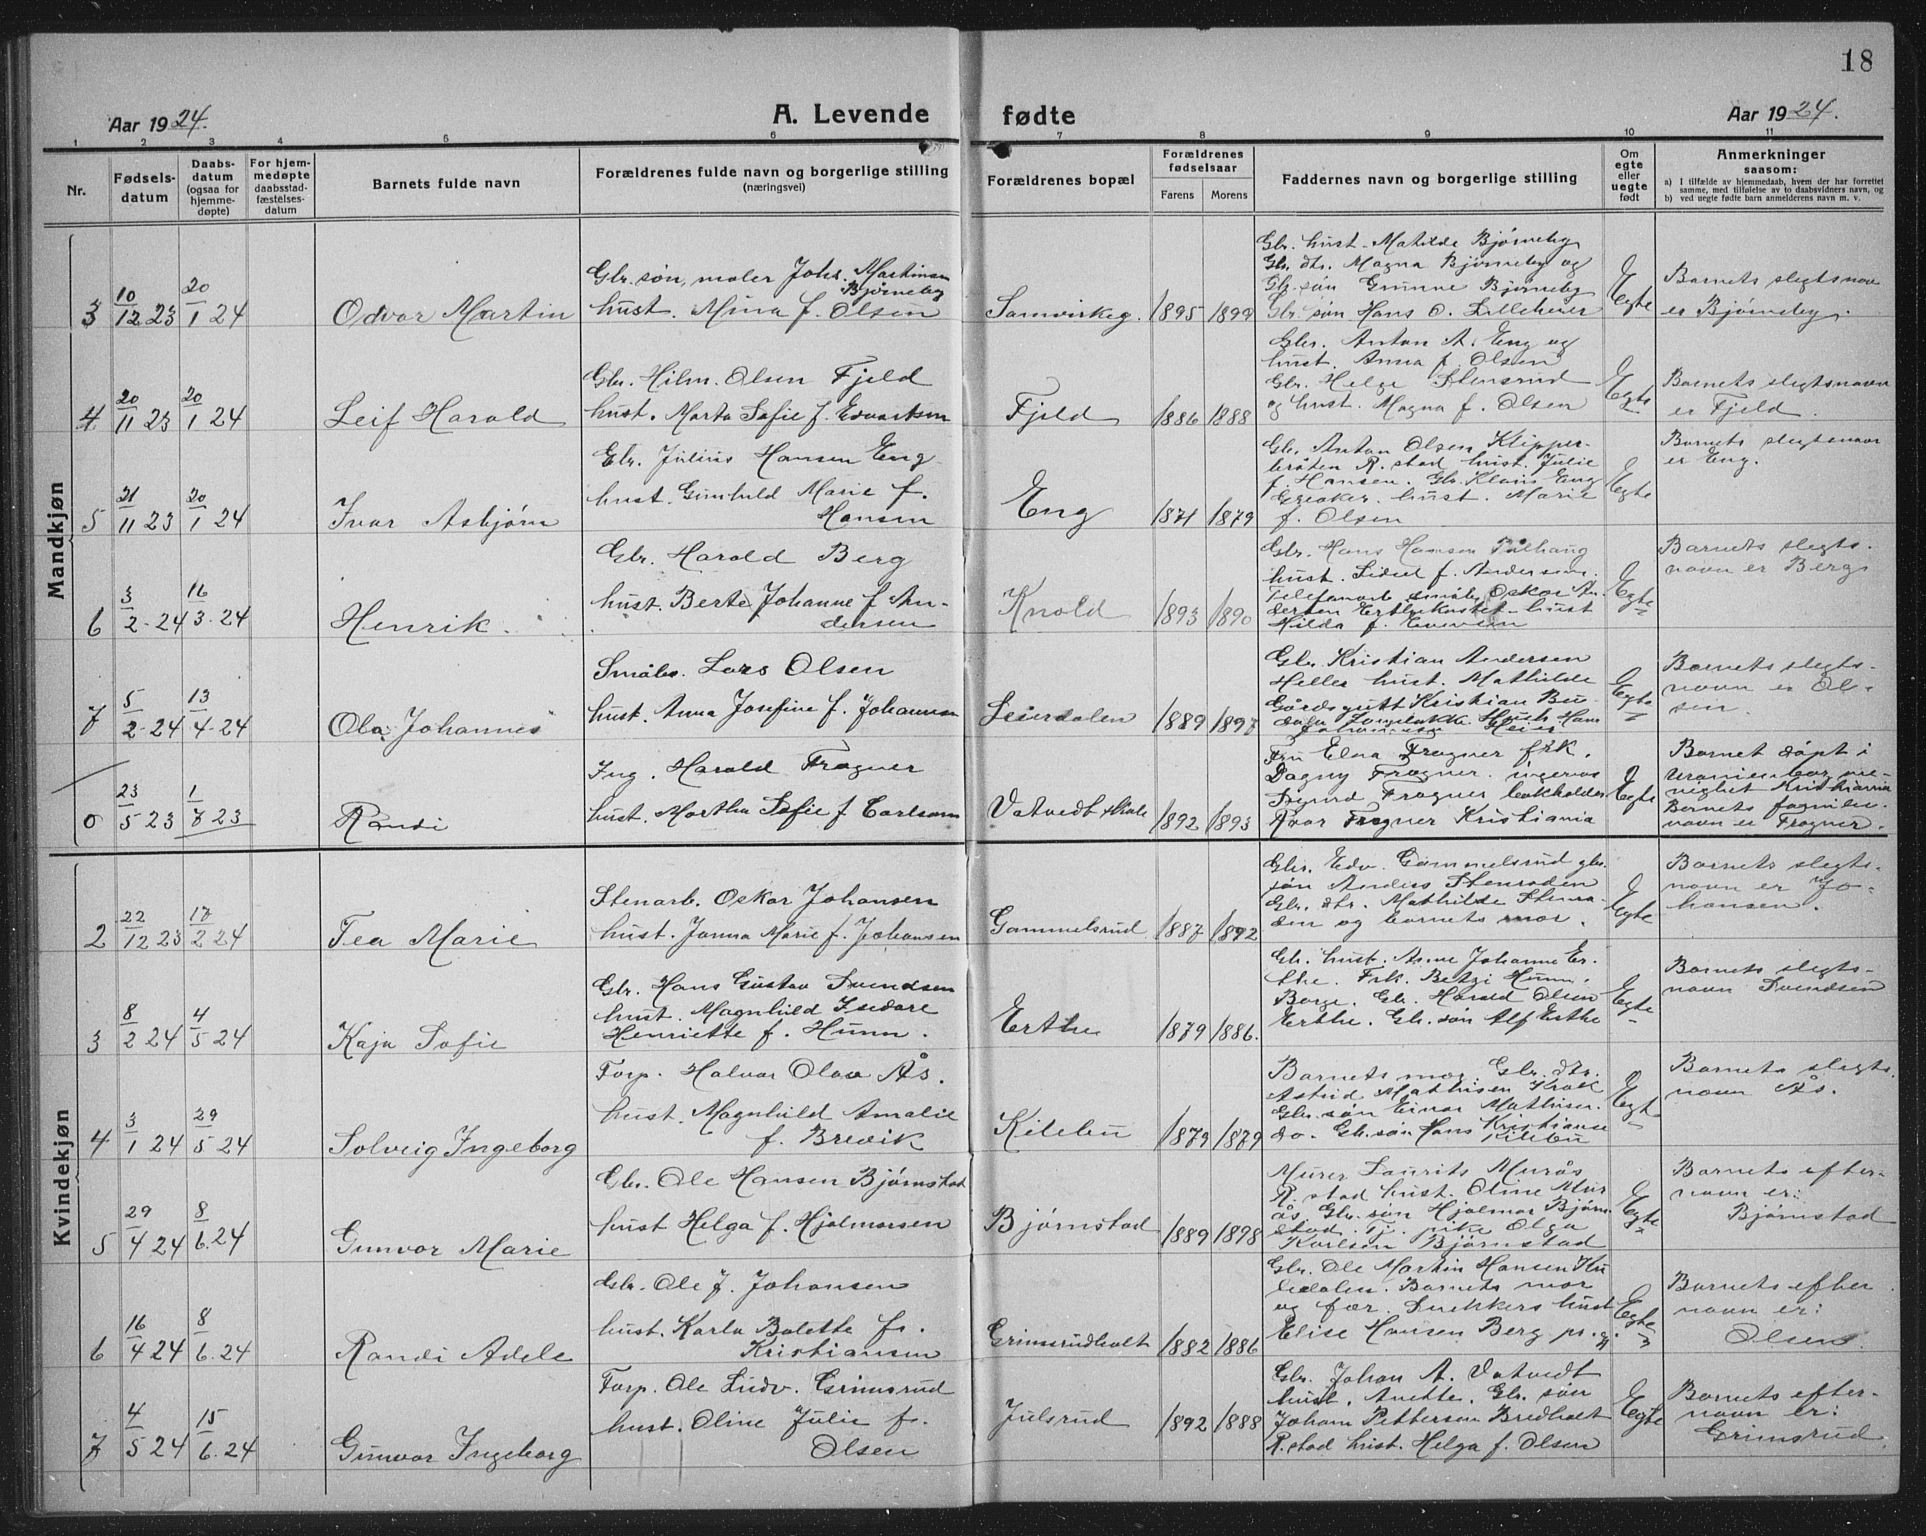 18
Aar 1924.
A. Levende fødte
Aar 1924.
1 2 3 4 5 6 7 8 9 10 11
Nr.
Fødsels-
datum
Daabs-
datum
(ogsaa for
hjemme-
døpte)
For hjem-
medøpte
daabsstad-
fæstelses-
datum
Barnets fulde navn
Forældrenes fulde navn og borgerlige stilling
(næringsvei)
Forældrenes bopæl
Forældrenes
fødselsaar
Farens Morens
Faddernes navn og borgerlige stilling
Om
egte
eller
uegte
født
Anmerkninger
saasom:
a) I tilfælde av hjemmedaab, hvem der har forrettet
samme, med tilføielse av to daabsvidners navn, og
b) ved uegte fødte barn anmelderens navn m. v.
Mandkjøn
3 10/12 23 20/1 24 Odvar Martin
Gbr. søn, maler Johs. Martinsen
Bjørneby
hust. Mina f. Olsen
Samvirkeg. 1895 1899
Gbr. hust. Matilde Bjørneby
Gbr. dtr. Magna Bjørneby og
Gbr. søn Gunne Bjørneby
Gbr. søn Hans O. Lilleheier
Egte
Barnets slegtsnavn
er Bjørneby.
4 20/11 23 20/1 24 Leif Harald
Gbr. Hilm. Olsen Fjeld
hust. Marta Sofie f. Edvartsen
Fjeld 1886 1888
Gbr. Anton A. Eng og
hust. Anna f. Olsen
Gbr. Helge Stensrud
og hust. Magna f. Olsen
Egte
Barnets slegtsnavn
er Fjeld.
5 21/11 23 20/1 24 Ivar Asbjørn
Gbr. Julius Hansen Eng
hust. Gunhild Marie f.
Hansen
Eng 1871 1879
Gbr. Anton Olsen Klipper-
bråten R.stad hust. Julie
f. Hansen. Gbr. Klaus Eng
Greaker. hust. Marie
f. Olsen
Egte
Barnets slegtsnavn
er Eng.
6 3/2 24 16/3 24 Henrik
Gbr. Harald Berg
hust. Berte Johanne f. An-
dersen
Knold 1893 1890
Gbr. Hans Hansen
hust. f. Andersen.
Oskar An-
dersen hust
Hilda f. Eversen
Egte
Barnets slegts-
navn er Berg
7 5/2 24 13/4 24 Ola Johannes
Småbr. Lars Olsen
hust. Anna Josefine f. Johannesen
Leierdalen 1889 1897
Gbr. Kristian Andersen
Heller hust. Mathilde
Gårdsgutt Kristian Bu-
Egte
Barnets slegts-
navn er Ol-
sen.
0 23/5 23 1/7 23 Randi
Ing. Harald Frogner
hust. Martha Sofie f. Carlsen
Vatvedt skole 1892 1893
Fru Elna Frogner frk.
Dagny Frogner. ingeniør
Frogner bokholder
Roar Frogner Kristiania
Egte
Barnet døpt i
Uranienborg me-
nighet Kristiania
Barnets familie-
navn er Frogner.
Kvindekjøn
2 22/12 23 17/2 24 Tea Marie
Stenarb. Oskar Johansen
hust. Janna Marie f. Johansen
Gammelsrud 1887 1892
Gbr. Edv. Gammelsrud gbr.
søn Anders Stenroden
Gbr. dtr. Mathilde Stenro-
den og barnets mor.
Egte
Barnets slegts-
navn er Jo-
hansen.
3 8/2 24 4/5 24 Kaja Sofie
Gbr. Hans Gustav Svendsen
hust. Magnhild Isedore
Henriette f. Hunn.
Erthe 1879 1886.
Gbr. hust. Anne Johanne Er-
the. Frk. Betzi Hunn.
Borge. Gbr. Harald Olsen
Erthe. Gbr. søn Alf Erthe
Egte
Barnets slegts-
navn Svendsen
4 3/1 24 29/5 24 Solveig Ingeborg
Forp. Halvor Olav Ås.
hust. Magnhild Amalie
f. Brevik
Kilebu 1879 1879
Barnets mor. Gbr. dtr.
Astrid Mathisen
Gbr. søn Einar Mathisen
do. Gbr. søn Hans Kristianse
Kilebu
Egte
Barnets slegts-
navn Ås.
5 29/4 24 8/6 24 Gunvor Marie
Gbr. Ole Hansen Bjørnstad
hust Helga f. Hjalmarsen
Bjørnstad 1889 1898
Murer Laurits Murås
R.stad hust. Oline Mur
ås. Gbr. søn Hjalmar Bjørn
stad. Tj. pike Olga
Karlsen Bjørnstad
Egte
Barnets efter-
navn er:
Bjørnstad
6 16/4 24 8/6 24 Randi Adele
Gbr. Ole J. Johansen
hust. Karla Bolette f.
Kristiansen
Grimsrudholt 1882 1886
Gbr. Ole Martin Hansen
. Barnets mor
og far. Snekkers hust
Elise Hansen Berg
Egte
Barnets efter
navn er:
Olsen.
7 4/5 24 15/6 24 Gunvor Ingeborg
Forp. Ole Ludv. Grimsrud
hust. Oline Julie f.
Olsen
Julsrud 1892 1888
Gbr. Johan A. Vatvedt
hust. Anette. Gbr. søn
Johan Pettersen Bredholt
R.stad hust. Helga f. Olsen
Egte
Barnets efter-
navn er:
Grimsrud.